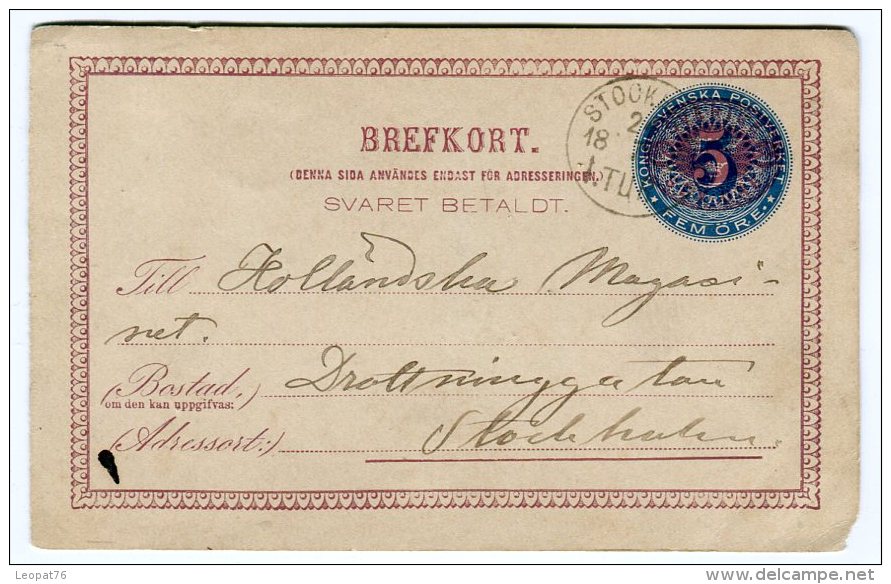 STOCK
2
18
1.TU
KONGL. SVENSKA POSTVERKET
5
FEM ÖRE.
BREFKORT.
(DENNA SIDA ANVÄNDES ENDAST FÖR ADRESSERINGEN.)
SVARET BETALDT.
Till Holländska Magasi-
net.
(Bostad, Drottninggatan
om den kan uppgifvas:)
(Adressort:) Stockholm.
Leopat76
www.delcampe.net